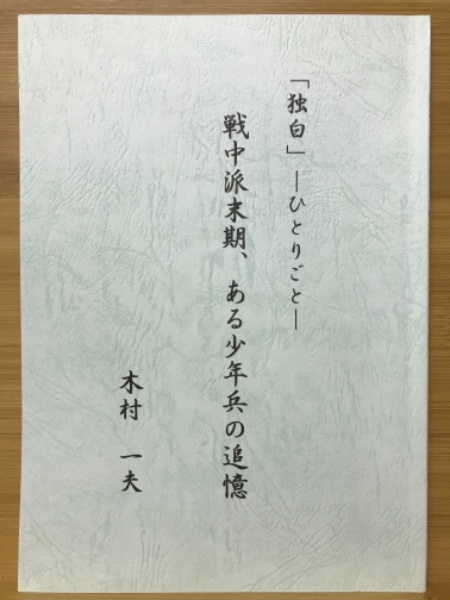 「独白」―ひとりごと―
戦中派末期、ある少年兵の追憶
木村 一夫